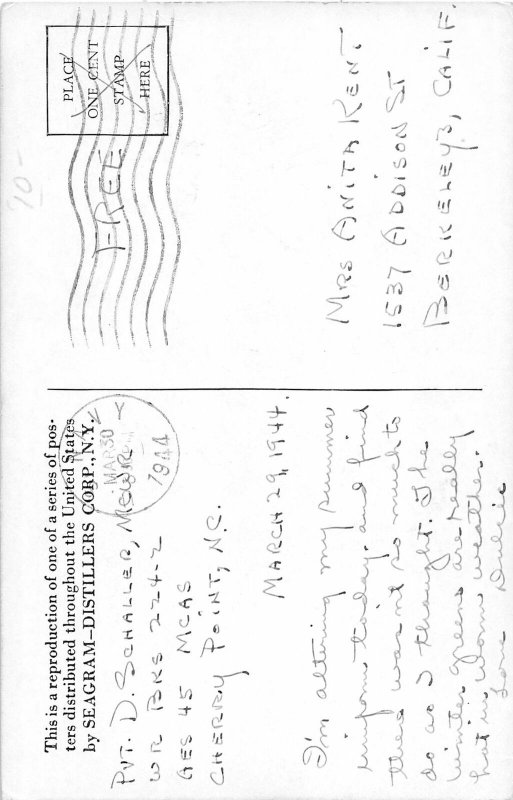 This is a reproduction of one of a series of pos-
ters distributed throughout the United States
by SEAGRAM–DISTILLERS CORP., N.Y.
PVT. D. SCHALLER, MCWR
WR BKS 224-2
AES 45 MCAS
CHERRY POINT, N.C.
MAR 30
1944
MARCH 29, 1944.
I'm altering my summer
uniform today, and find
there wasn't so much to
do as I thought. The
winter greens are really
hot in warm weather.
Love Dulcie
PLACE
ONE CENT
STAMP
HERE
FREE
20-
MRS ANITA KENT
1537 ADDISON ST
BERKELEY 3, CALIF.